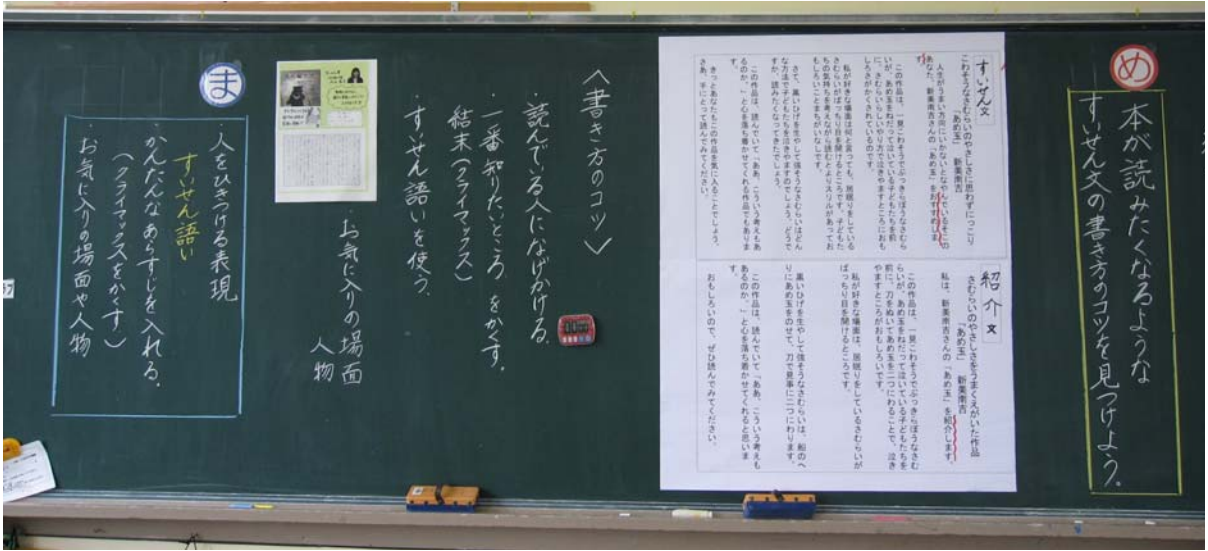 め
本が読みたくなるような
すいせん文の書き方のコツを見つけよう。
すいせん文
こわそうなさむらいのやさしさに思わずにっこり
「あめ玉」 新美南吉
人生がうまい方向にいかないとなやんでいるそこの
あなた、新美南吉さんの「あめ玉」をおすすめしま
す。
この作品は、一見こわそうでぶっきらぼうなさむら
いが、あめ玉をねだって泣いている子どもたちを前
に、さむらいらしいやり方で泣きやますところにおも
しろさがかくされているのです。
私が好きな場面は何と言っても、居眠りをしている
さむらいがぱっちり目を開けるところです。子どもた
ちの気持ちを考えながら読むとよりスリルがあってお
もしろいことまちがいなしです。
さて、黒いひげを生やして強そうなさむらいはどん
な方法で子どもたちを泣きやますのでしょう。どうで
すか、読みたくなってきたでしょう。
この作品は、読んでいて「ああ、こういう考えもあ
るのか。」と心を落ち着かせてくれる作品でもありま
す。
きっとあなたもこの作品を気に入ることでしょう。
さあ、手にとって読んでみてください。
紹介文
さむらいのやさしさをうまくえがいた作品
「あめ玉」 新美南吉
私は、新美南吉さんの「あめ玉」を紹介します。
この作品は、一見こわそうでぶっきらぼうなさむ
らいが、あめ玉をねだって泣いている子どもたちを
前に、刀をぬいてあめ玉を二つにわることで、泣き
やますところがおもしろいです。
私が好きな場面は、居眠りをしているさむらいが
ぱっちり目を開けるところです。
黒いひげを生やして強そうなさむらいは、船のへ
りにあめ玉をのせて、刀で見事に二つにわります。
この作品は、読んでいて「ああ、こういう考えも
あるのか。」と心を落ち着かせてくれると思いま
す。
おもしろいので、ぜひ読んでみてください。
〈書き方のコツ〉
・読んでいる人になげかける。
・一番知りたいところをかくす。
結末(クライマックス)
・すいせん語いを使う。
・お気に入りの場面
人物
ま
・人をひきつける表現
すいせん語い
・かんたんなあらすじを入れる。
(クライマックスをかくす)
・お気に入りの場面や人物